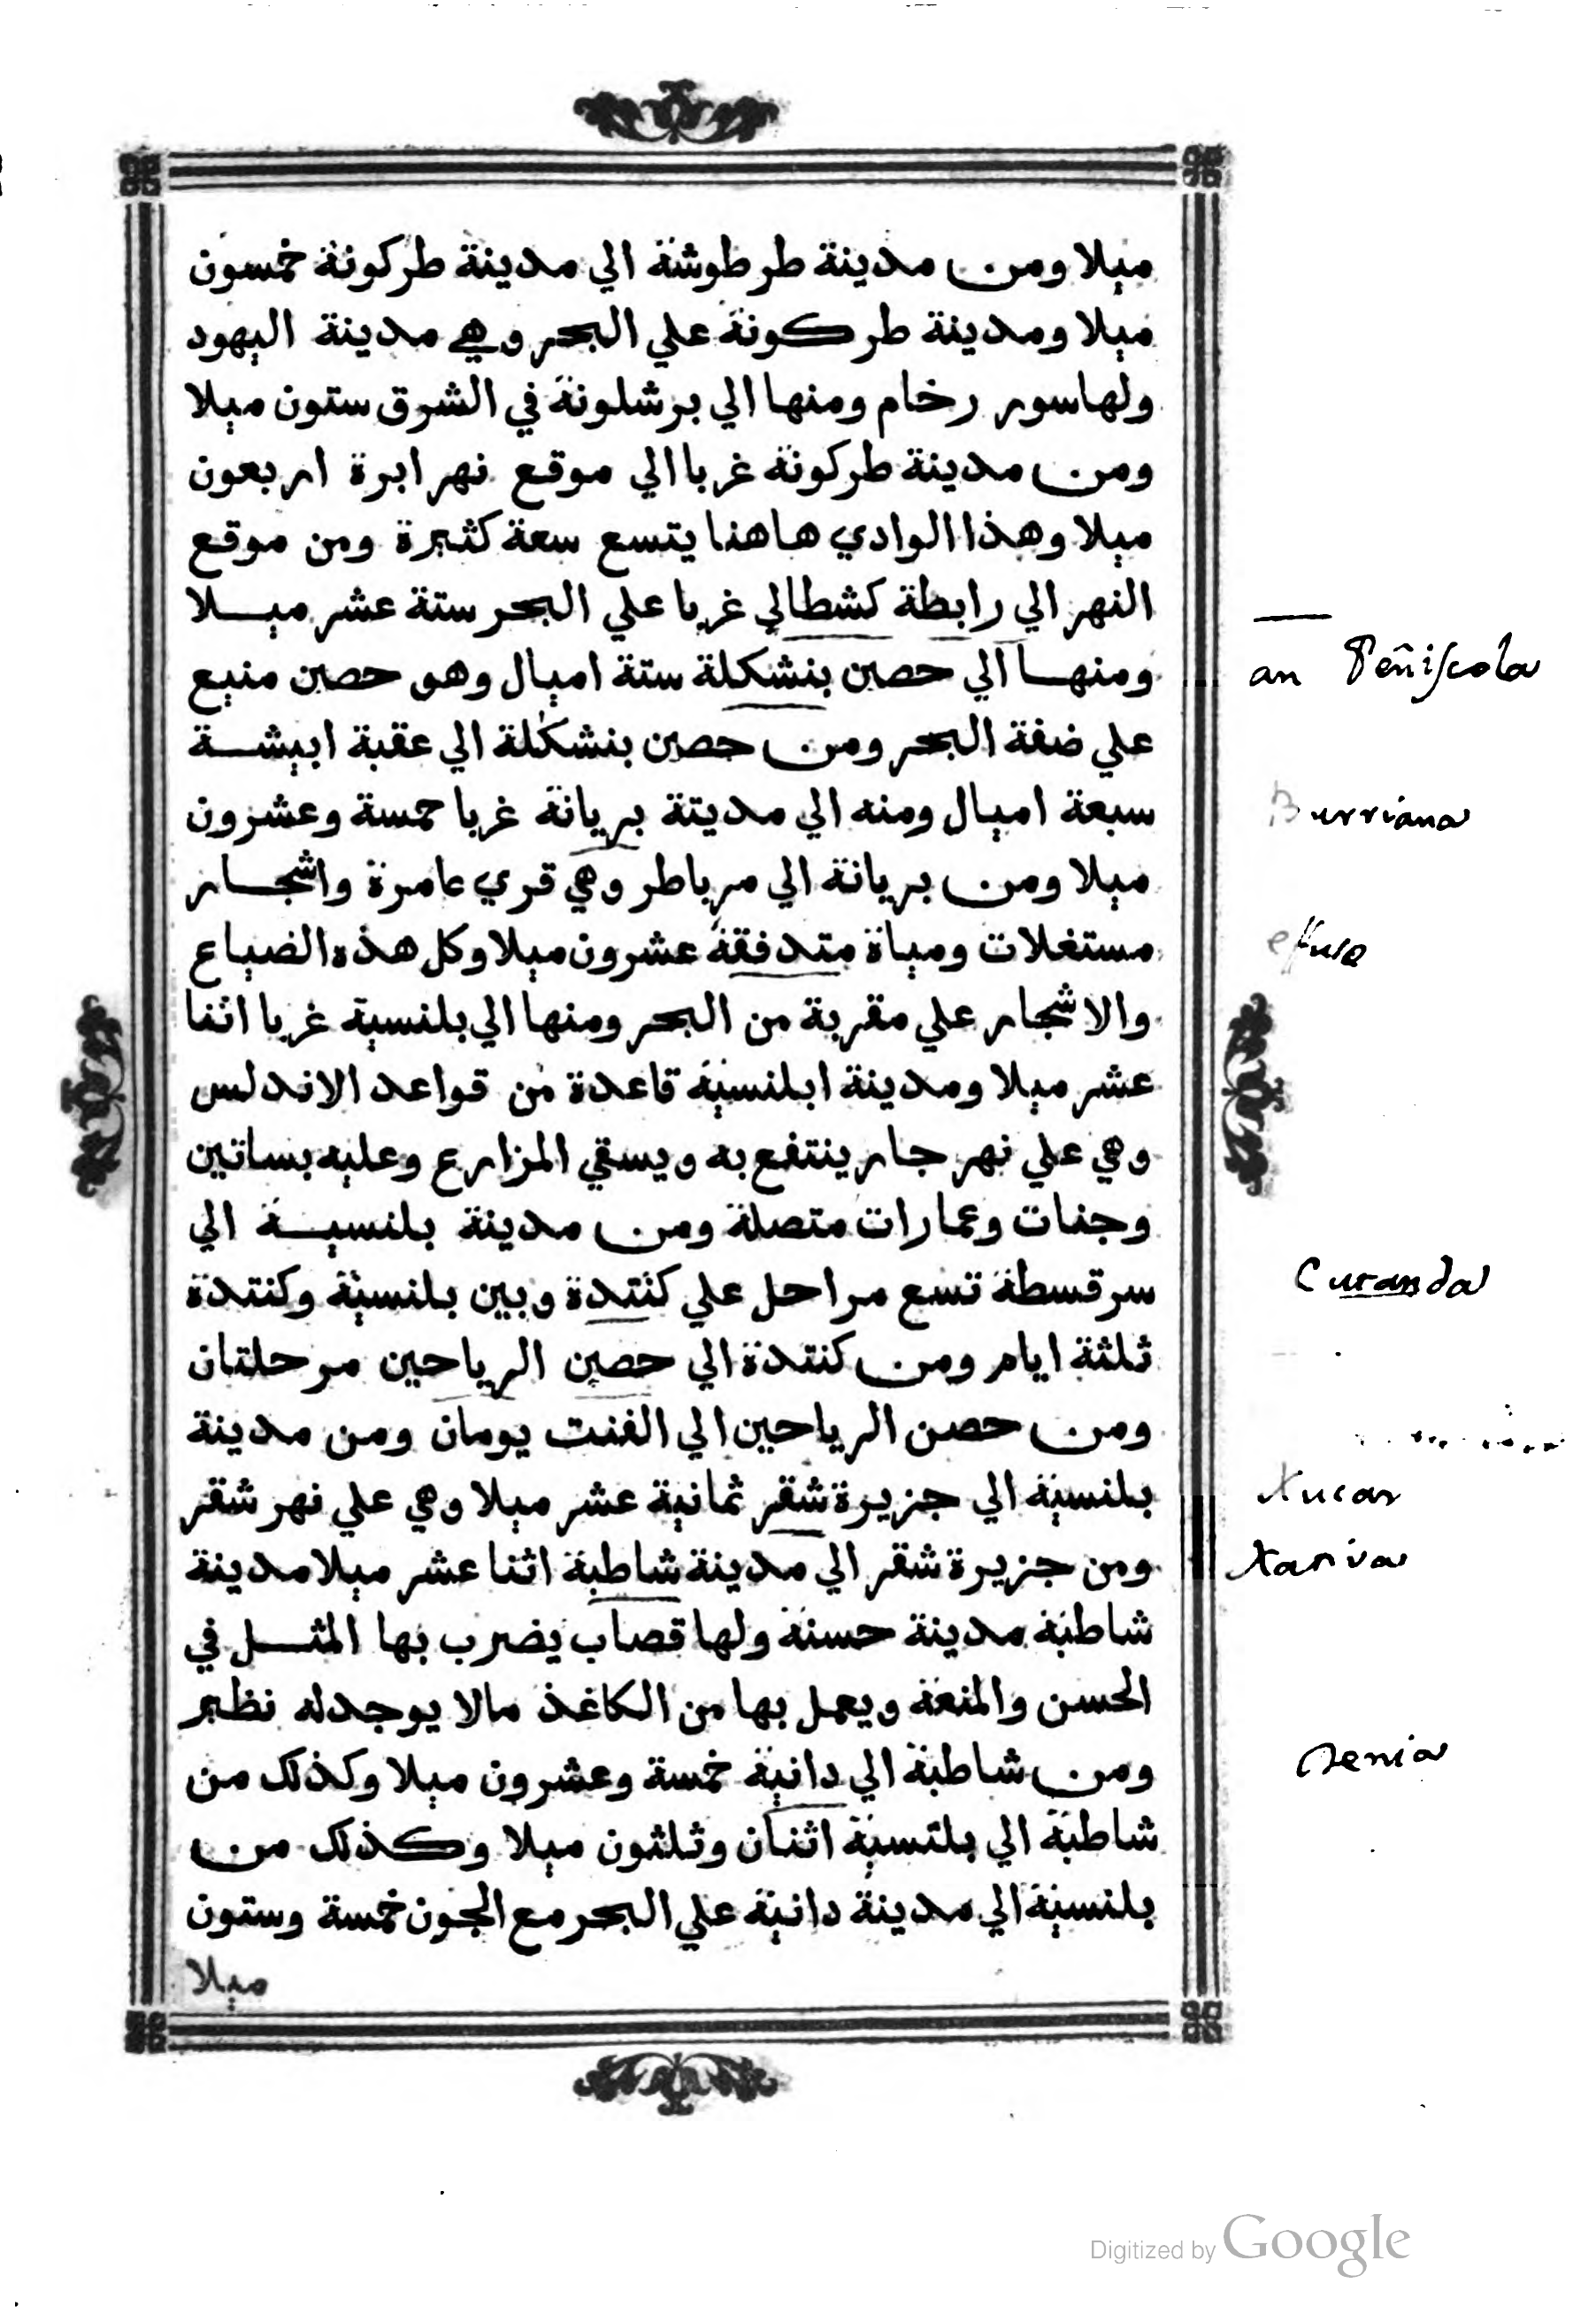 ميلا ومن مدينة طرطوشة الي مدينة طركونة خمسون
ميلا ومدينة طركونة علي البحر وهي مدينة اليهود
ولها سور رخام ومنها الي برشلونة في الشرق ستون ميلا
ومن مدينة طركونة غربا الي موقع نهر ابرة اربعون
ميلا وهذا الوادي هاهنا يتسع سعة كثيرة ومن موقع
النهر الي رابطة كشطالي غربا علي البحر ستة عشر ميلا
ومنها الي حصن بنشكلة ستة اميال وهو حصن منيع
an Peñiscola
علي ضفة البحر ومن حصن بنشكلة الي عقبة ابيشة
سبعة اميال ومنه الي مديتة بريانة غربا خمسة وعشرون
Burriana
ميلا ومن بريانة الي مرباطر وهي قري عامرة واشجار
مستغلات ومياة متدفقة عشرون ميلا وكل هذه الضياع
effuse
والاشجار علي مقربة من البحر ومنها الي بلنسية غربا اثنا
عشر ميلا ومدينة ابلنسية قاعدة من قواعد الاندلس
وهي علي نهر جار ينتفع به ويسقي المزارع وعليه بساتين
وجنات وعمارات متصلة ومن مدينة بلنسية الي
سرقسطة تسع مراحل علي كنتدة وبين بلنسية وكنتدة
Curanda
ثلثة ايام ومن كنتدة الي حصن الرياحين مرحلتان
ومن حصن الرياحين الي الفنت يومان ومن مدينة
بلنسية الي جزيرة شقر ثمانية عشر ميلا وهي علي نهر شقر
Xucar
ومن جزيرة شقر الي مدينة شاطبة اثنا عشر ميلا مدينة
Xativa
شاطبة مدينة حسنة ولها قصاب يضرب بها المثل في
الحسن والمنعة ويعمل بها من الكاغذ مالا يوجد له نظير
ومن شاطبة الي دانية خمسة وعشرون ميلا وكذلك من
Denia
شاطبة الي بلتسية اثنان وثلثون ميلا وكذلك من
بلنسية الي مدينة دانية علي البحر مع الجون خمسة وستون
ميلا
Digitized by Google